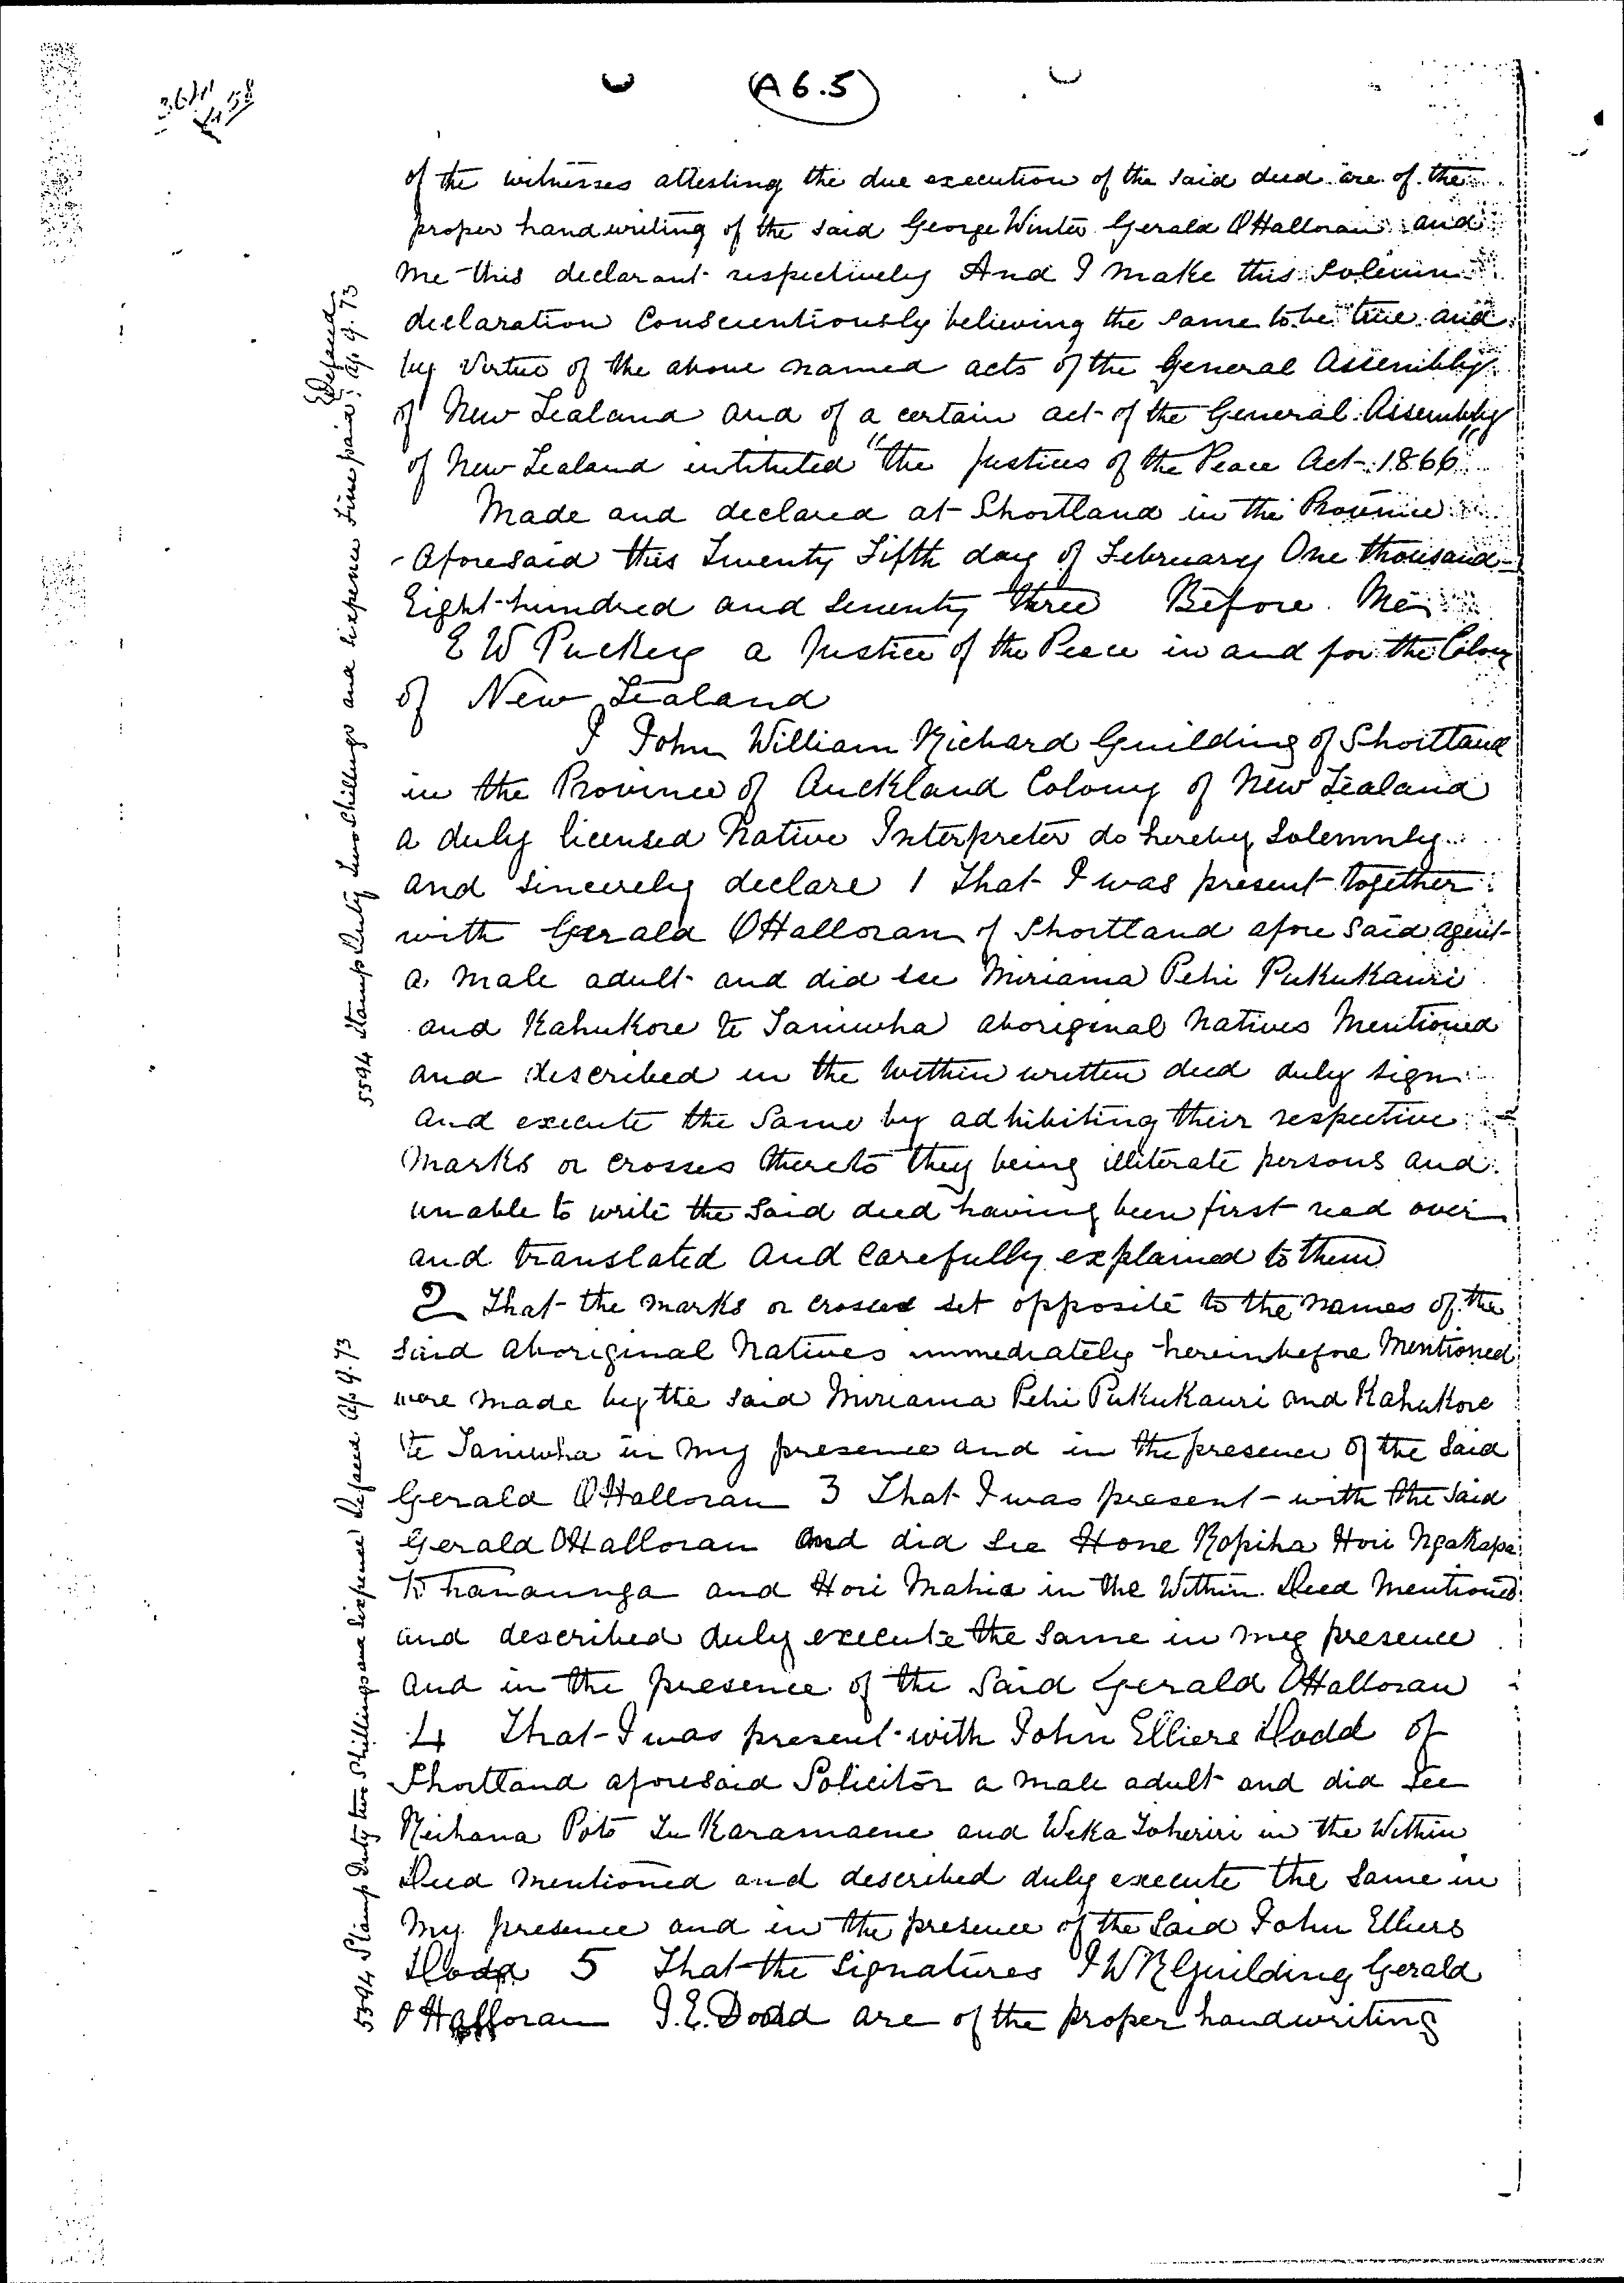 (A 6.5)
of the witnesses attesting the due execution of the said deed are of the
proper handwriting of the said George Winter Gerald O'Halloran and
me this declarant respectively And I make this solemn
declaration Conscientiously believing the same to be true and
by Virtue of the above named acts of the General Assembly
of New Zealand and of a certain act of the General Assembly
of New Zealand intituted "the Justices of the Peace Act 1866"
Made and declared at Shortland in the Province
aforesaid this Twenty Fifth day of February One thousand
Eight hundred and seventy three Before Me
E W Puckey a Justice of the Peace in and for the Colony
of New Zealand
I John William Richard Guilding of Shortland
in the Province of Auckland Colony of New Zealand
a duly licensed Native Interpreter do hereby solemnly
and sincerely declare 1 That I was present together
with Gerald OHalloran of Shortland afore said agent
a male adult and did see Miriama Pehi Pukukauri
and Kahukore te Taniwha aboriginal natives Mentioned
and described in the within written deed duly sign
and execute the same by adhibiting their respective
Marks or crosses thereto they being illiterate persons and
unable to write the said deed having been first read over
and translated and carefully explained to them
2 That the marks or crosses set opposite to the names of the
said aboriginal Natives immediately hereinbefore Mentioned
were made by the said Miriama Pehi Pukukauri and Kahukore
te Taniwha in my presence and in the presence of the said
Gerald OHalloran 3 That I was present with the said
Gerald OHalloran and did see Hone Ropiha Hori Ngakapa
Te hanaunga and Hori Mahia in the Within Deed Mentioned
and described duly execute the same in my presence
and in the presence of the said Gerald OHalloran
4 That I was present with John Elliers Dodd of
Shortland aforesaid Solicitor a male adult and did see
Reihana Poto Tu Karamaene and Weka Toheriri in the Within
Deed mentioned and described duly execute the same in
my presence and in the presence of the said John Elliers
Dodd 5 That the signatures J W R Guilding Gerald
OHalloran J.E. Dodd are of the proper handwriting
5594 Stamp Duty two shillings and sixpence Fine paid 9. 73
Defaced
5594 Stamp Duty two shillings and sixpence Defaced 9. 73